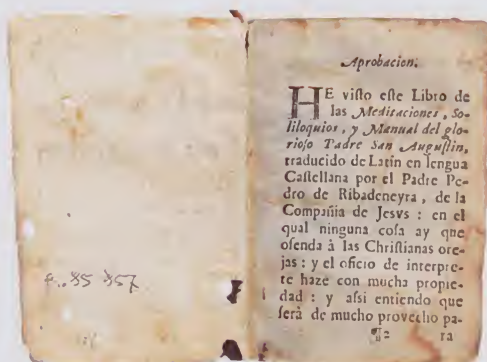 Aprobacion.
HE visto este Libro de
las Meditaciones, So-
liloquios, y Manual del glo-
rioso Padre San Augustin,
traducido de Latin en lengua
Castellana por el Padre Pe-
dro de Ribadeneyra, de la
Compañia de Jesvs : en el
qual ninguna cosa ay que
ofenda à las Christianas ore-
jas : y el oficio de interpre-
te haze con mucha propie-
dad : y assi entiendo que
serà de mucho provecho pa-
¶2 ra